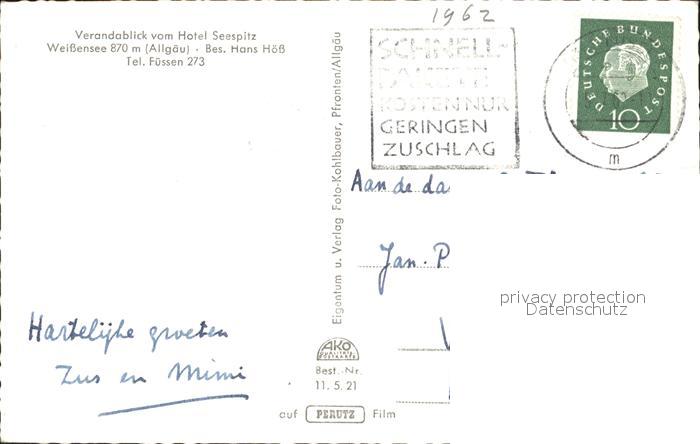 Verandablick vom Hotel Seespitz
Weißensee 870 m (Allgäu) · Bes. Hans Höß
Tel. Füssen 273
1962
SCHNELL-
PAKETE
KOSTEN NUR
GERINGEN
ZUSCHLAG
DEUTSCHE BUNDESPOST
10
m
Eigentum u. Verlag Foto-Kohlbauer, Pfronten/Allgäu
Aan de da
Jan. P
privacy protection
Datenschutz
Hartelijke groeten
Zus en Mimi
AKO
QUALITÄTS
POSTKARTE
Best.-Nr.
11. 5. 21
auf PERUTZ Film